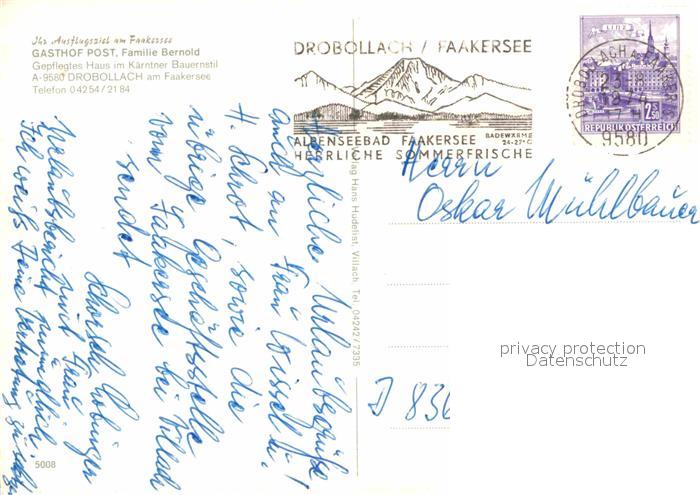 Ihr Ausflugsziel am Faakersee
GASTHOF POST, Familie Bernold
Gepflegtes Haus im Kärntner Bauernstil
A-9580 DROBOLLACH am Faakersee
Telefon 0 42 54 / 21 84
DROBOLLACH / FAAKERSEE
ALPENSEEBAD FAAKERSEE
BADEWÄRME
24-27°C
HERRLICHE SOMMERFRISCHE
LINZ
2.50
REPUBLIK ÖSTERREICH
DROBOLLACH A. FAAKERSEE
9580
Herrn
Oskar Mühlbauer
D 836
privacy protection
Datenschutz
Verlag Hans Hudelist, Villach, Tel. 04242/7335
Herzliche Urlaubsgrüße
auch an Frau
H. Schrot, sowie die
übrige Geschäftsstelle
vom Faakersee bei Villach
sendet
Schorsch
mit Frau
Urlaubsbericht mündlich.
Ich weiß Deine Vertretung zu
5008